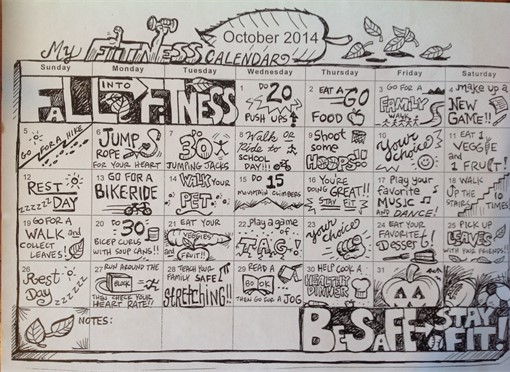 My FITNESS CALENDAR
October 2014
Sunday Monday Tuesday Wednesday Thursday Friday Saturday
FALL INTO FITNESS
1 DO 20 PUSH UPS
2 EAT A GO FOOD
3 GO FOR A FAMILY WALK
4 make up a NEW GAME!!
5 GO FOR A HIKE
6 JUMP ROPE FOR YOUR HEART
7 DO 30 JUMPING JACKS
8 Walk OR Ride to SCHOOL DAY!!!
9 Shoot some HOOPS
10 Your choice
11 EAT 1 VEGGIE and 1 FRUIT!
12 REST DAY ZZZZZZ
13 GO FOR A BIKE RIDE
14 WALK YOUR PET
15 DO 15 MOUNTAIN CLIMBERS
16 YOU'RE DOING GREAT!! STAY FIT
17 Play your favorite MUSIC and DANCE!
18 WALK UP THE STAIRS 10 TIMES
19 GO FOR A WALK and COLLECT LEAVES!
20 DO 30 BICEP CURLS WITH SOUP CANS!!
21 EAT YOUR VEGGIES and FRUIT!!
22 Play a game of T.A.G.!
23 your choice
24 EAT YOUR FAVORITE Dessert!
25 PICK UP LEAVES WITH YOUR FRIENDS!
26 Rest Day ZZZZZ
27 RUN AROUND THE BLOCK THEN CHECK YOUR HEART RATE!!
28 TEACH YOUR FAMILY SAFE STRETCHING!!
29 READ A BOOK THEN GO FOR A JOG
30 HELP COOK A HEALTHY DINNER
31
NOTES:
BE SAFE STAY FIT!